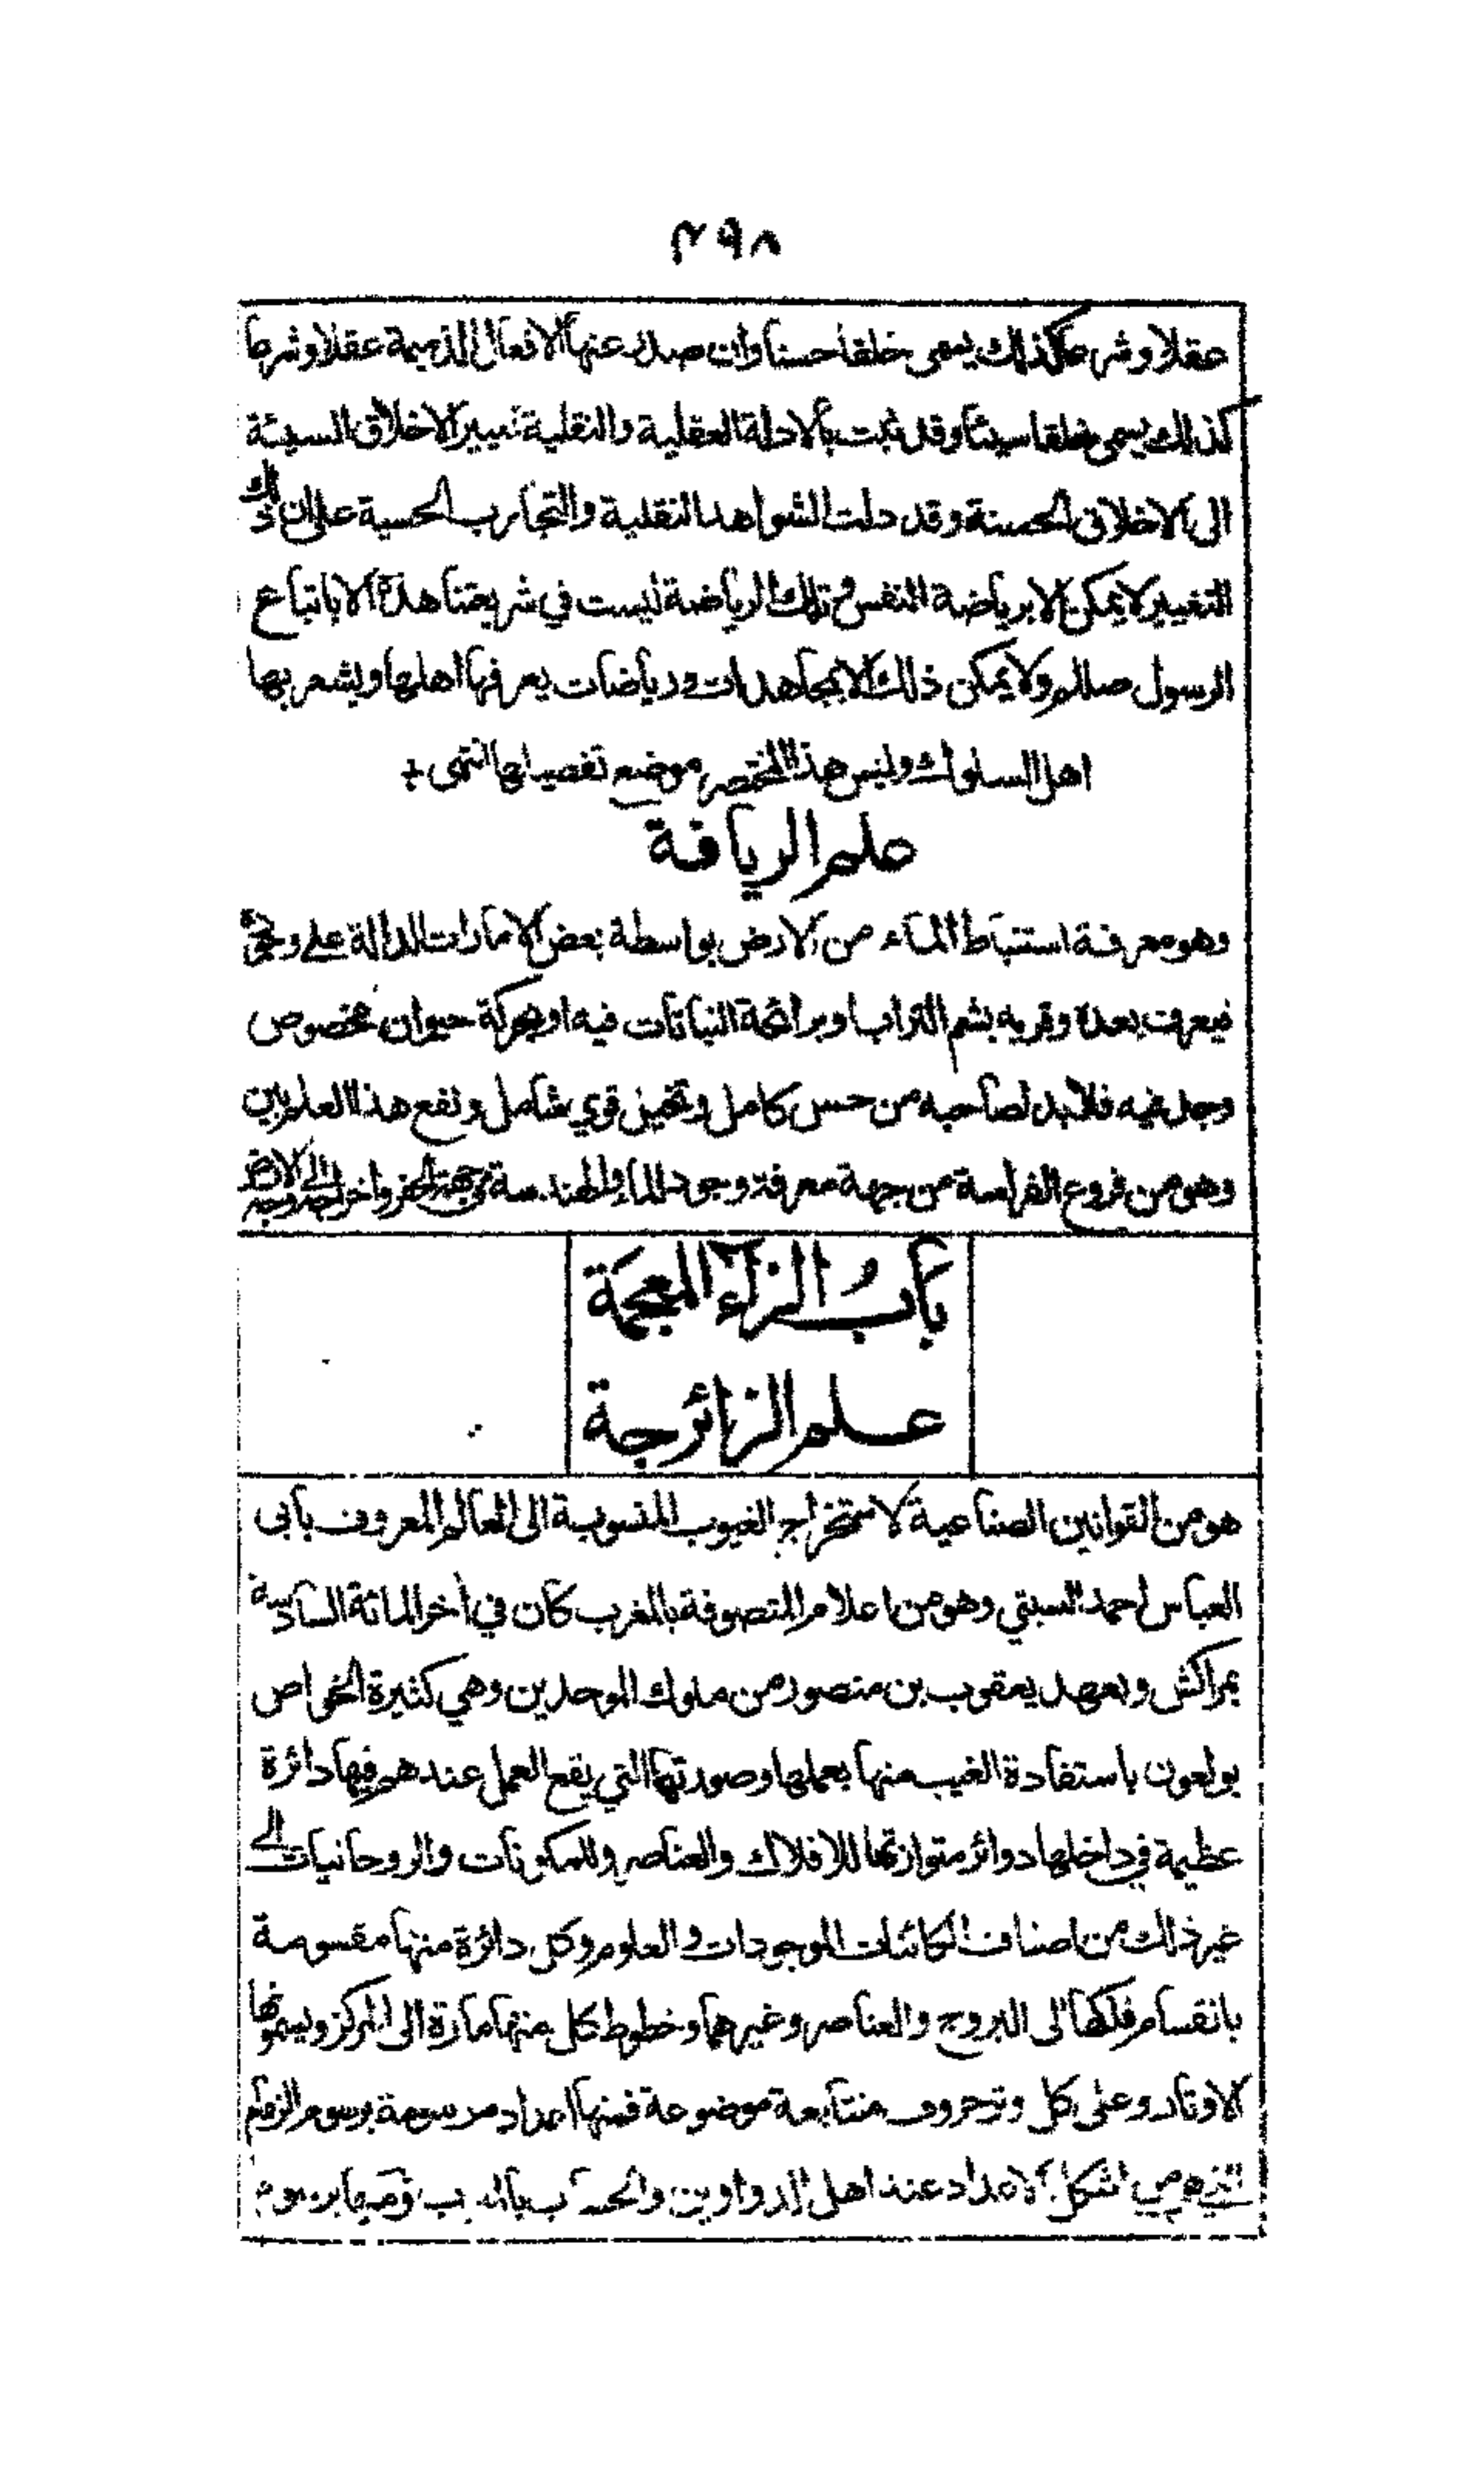 ٢٩٨
عقلا وشرعا كذلك يسمى خلقا حسنا وان صدر عنها الافعال الذميمة عقلا وشرعا
كذلك يسمى خلقا سيئا وقد ثبت بالادلة العقلية والنقلية تغيير الاخلاق السيئة
الى الاخلاق الحسنة وقد دلت الشواهد النقلية والتجارب الحسية على ان ذلك
التغيير لا يمكن الا برياضة النفس وتلك الرياضة ليست في شريعتنا هذه الا باتباع
الرسول صللم ولا يمكن ذلك الا بمجاهدات ورياضات يعرفها اهلها ويشعر بها
اهل السلوك وليس هذا المختصر موضع تفصيلها انتهى +
علم الريافة
وهو معرفة استنباط الماء من الارض بواسطة بعض الامارات الدالة على وجوده
فيعرف بعده وقربه بشم التراب او برائحة النباتات فيه او بحركة حيوان مخصوص
وجد فيه فلا بد لصاحبه من حس كامل وتخيل قوي شامل ونفع هذا العلم بين
وهو من فروع الفراسة من جهة معرفة وجود الماء والهندسة من جهة الحفر واخراجه الى وجه الارض
باب الزاء المعجمة
علم الزائرجة
هو من القوانين الصناعية لاستخراج الغيوب المنسوبة الى العالم المعروف بابي
العباس احمد السبتي وهو من اعلام المتصوفة بالمغرب كان في آخر المائة السادسة
بمراكش وبعهد يعقوب بن منصور من ملوك الموحدين وهي كثيرة الخواص
يولعون باستفادة الغيب منها بعملها وصورتها التي يقع العمل عندهم فيها دائرة
عظيمة في داخلها دوائر متوازية للافلاك والعناصر وللمكونات والروحانيات الى
غير ذلك من اصناف الكائنات الموجودات والعلوم وكل دائرة منها مقسومة
بانقسام فلكها الى البروج والعناصر وغيرهما وخطوط كل منها مارة الى المركز ويسمونها
الاوتار وعلى كل وتر حروف متتابعة موضوعة فمنها اعداد مرسومة برسوم الزمام
التي هي من اشكال الاعداد عند اهل الدواوين والحساب بالمغرب ومنها برسوم